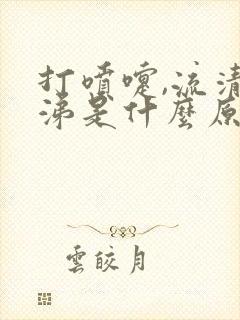 打噴嚏,流清
涕是什麼原
雲皎月